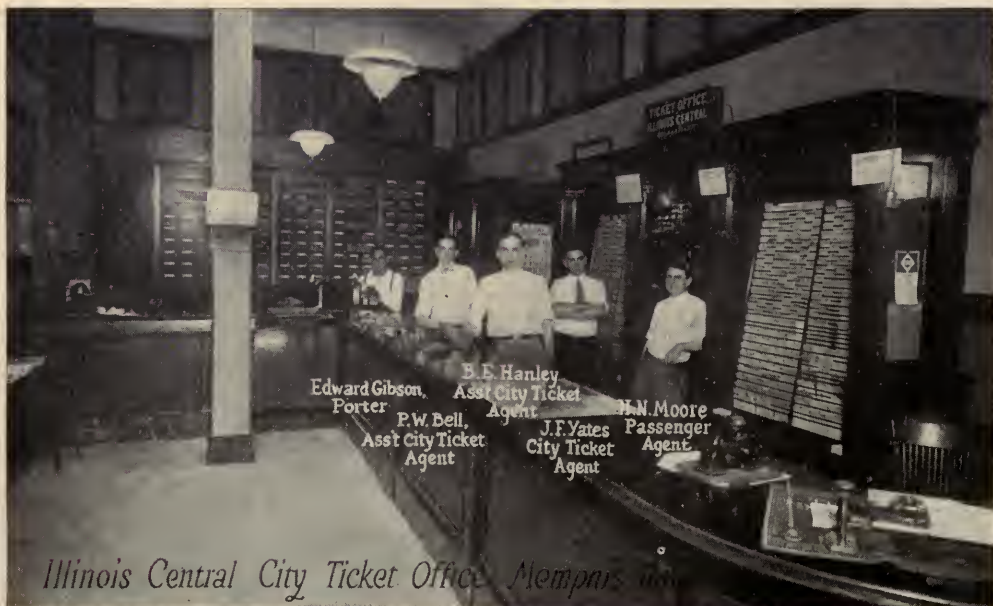 TICKET OFFICE
ILLINOIS CENTRAL
Edward Gibson,
Porter
P.W. Bell,
Ass't City Ticket
Agent
B.E. Hanley
Ass't City Ticket
Agent
J.F. Yates
City Ticket
Agent
H.N. Moore
Passenger
Agent.
Illinois Central City Ticket Office Memphis